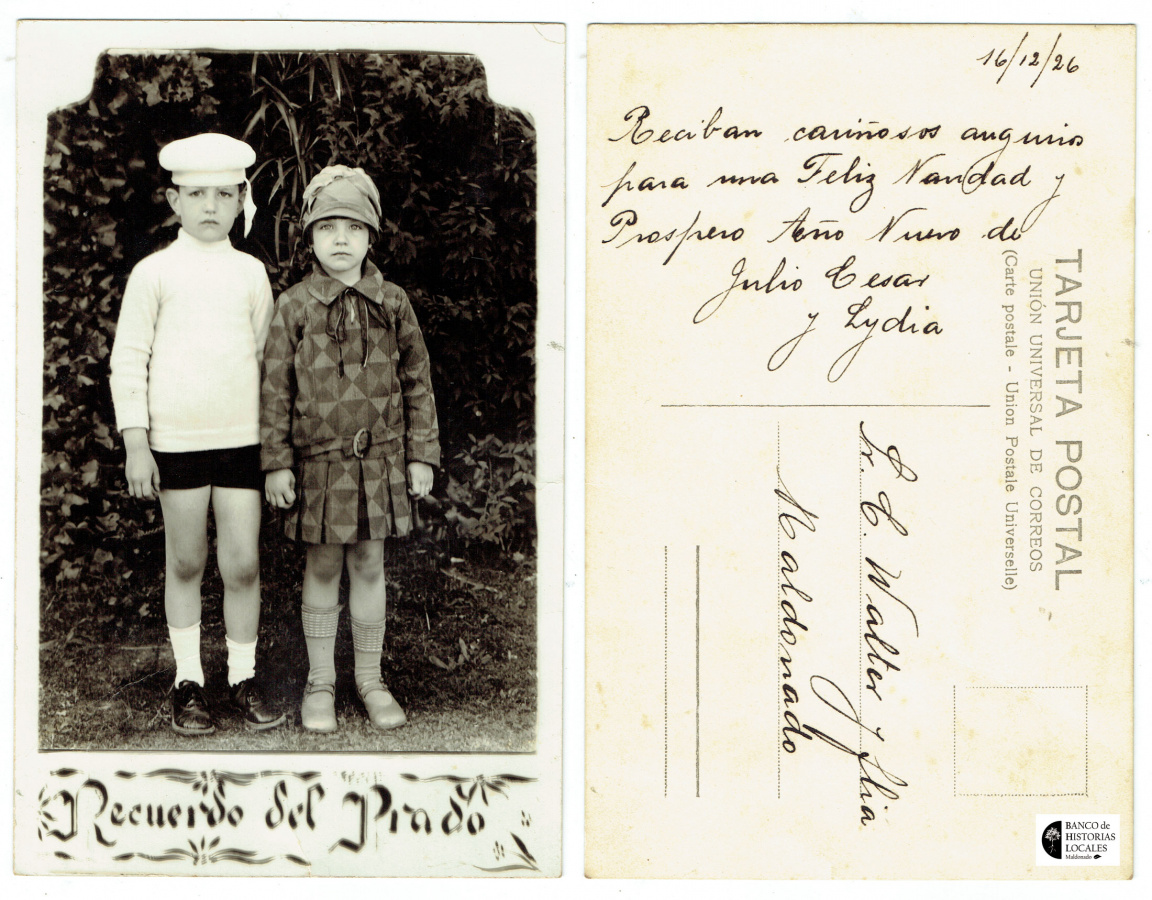 Recuerdo del Prado
16/12/26
Reciban cariñosos augurios
para una Feliz Navidad y
Prospero Año Nuevo de
Julio Cesar
y Lydia
TARJETA POSTAL
UNIÓN UNIVERSAL DE CORREOS
(Carte postale - Union Postale Universelle)
Sr. C. Walter y flia
Maldonado
BANCO de
HISTORIAS
LOCALES
Maldonado